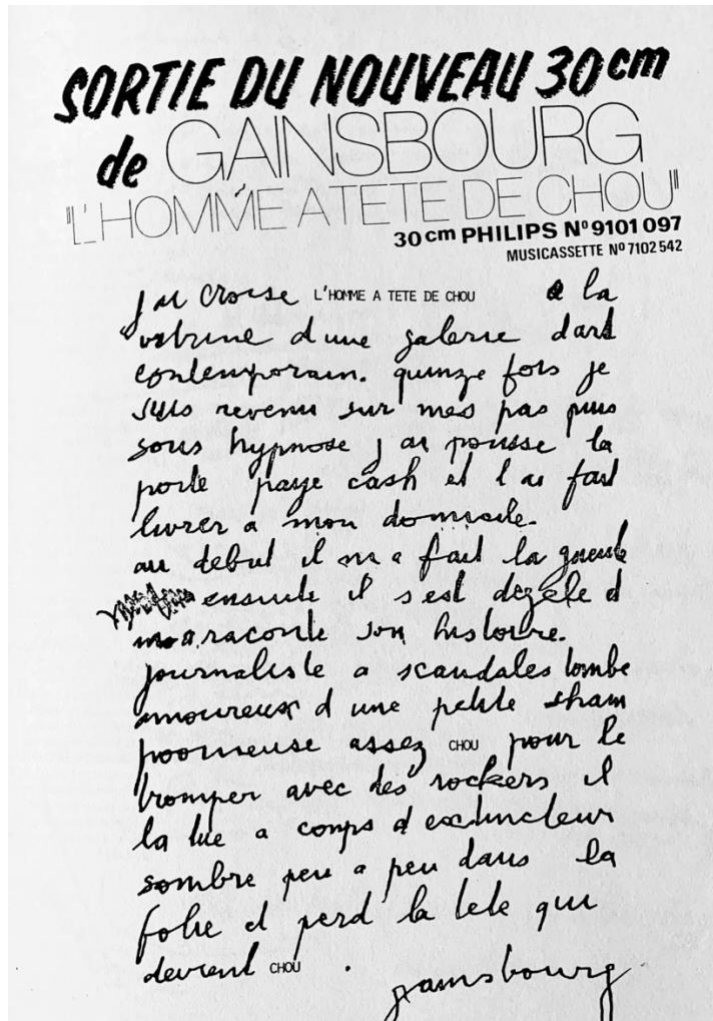 SORTIE DU NOUVEAU 30cm
de GAINSBOURG
"L'HOMME A TETE DE CHOU"
30cm PHILIPS Nº 9101 097
MUSICASSETTE Nº 7102 542
j ai croise L'HOMME A TETE DE CHOU a la
vitrine d une galerie d art
contemporain. quinze fois je
suis revenu sur mes pas puis
sous hypnose j ai pousse la
porte paye cash et l ai fait
livrer a mon domicile.
au debut il m a fait la gueule
ensuite il s est degele et
m a raconte son histoire.
journaliste a scandales tombe
amoureux d une petite sham
pooineuse assez CHOU pour le
tromper avec des rockers il
la tue a coups d extincteur
sombre peu a peu dans la
folie et perd la tete qui
devient CHOU .
gainsbourg